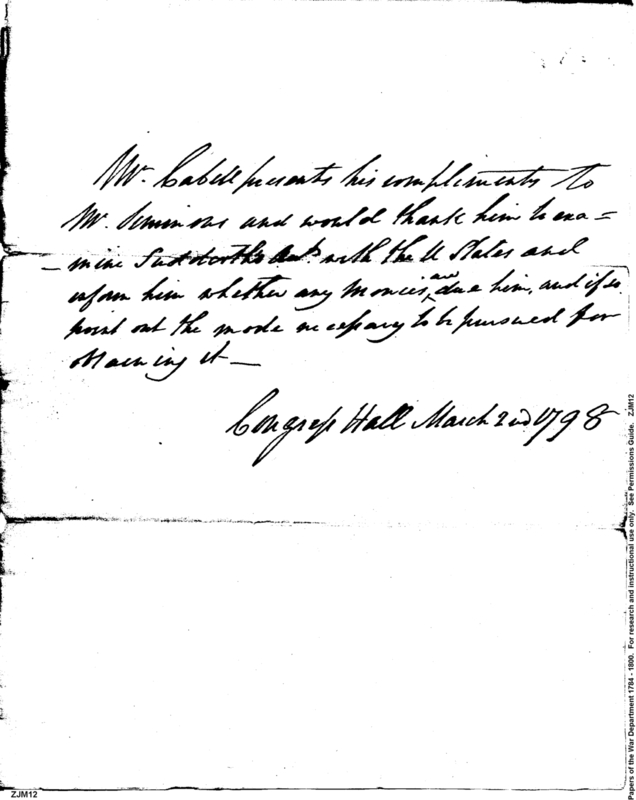 Mr. Cabell presents his compliments to
Mr. Simmons and would thank him to exa=
-mine Sudderths Acts. with the U States and
inform him whether any Monies are due him, and if so
point out the mode necessary to be pursued for
obtaining it —
Congress Hall March 2nd 1798
ZJM12
Papers of the War Department 1784 - 1800. For research and instructional use only. See Permissions Guide. ZJM12